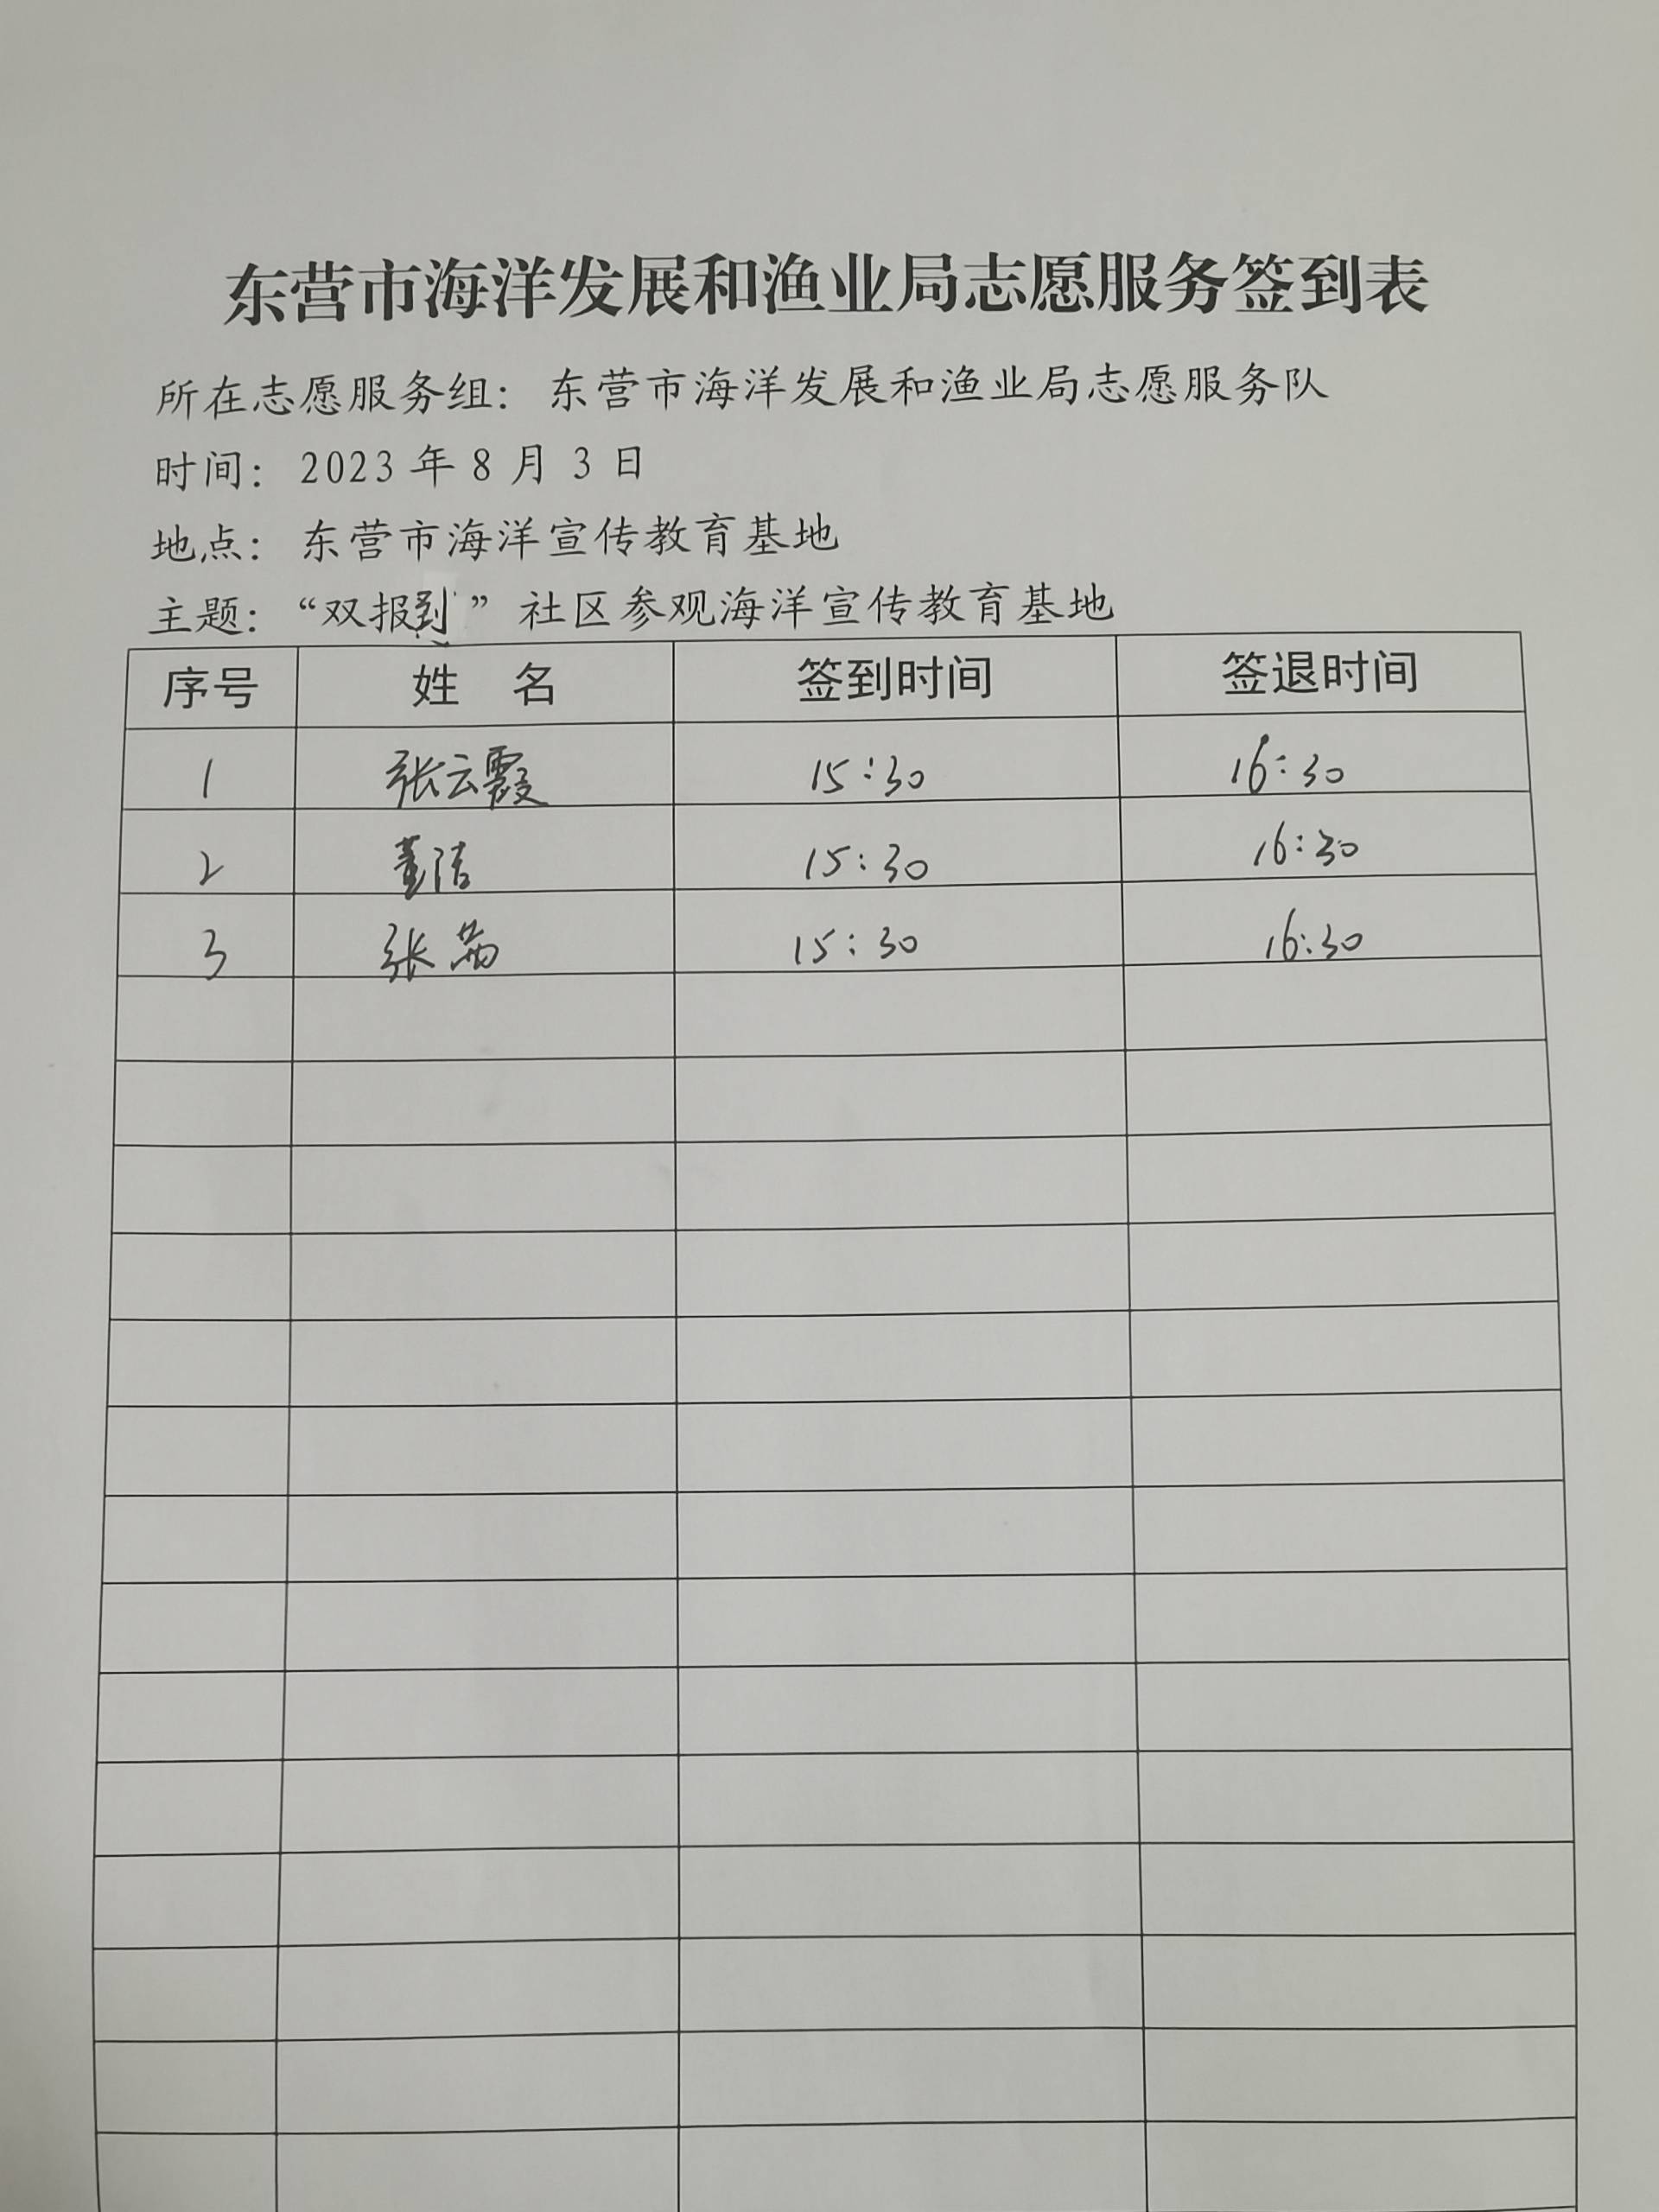 东营市海洋发展和渔业局志愿服务签到表
所在志愿服务组：东营市海洋发展和渔业局志愿服务队
时间：2023年8月3日
地点：东营市海洋宣传教育基地
主题：“双报到”社区参观海洋宣传教育基地
序号 姓 名 签到时间 签退时间
1 张云霞 15:30 16:30
2 董洁 15:30 16:30
3 张茜 15:30 16:30